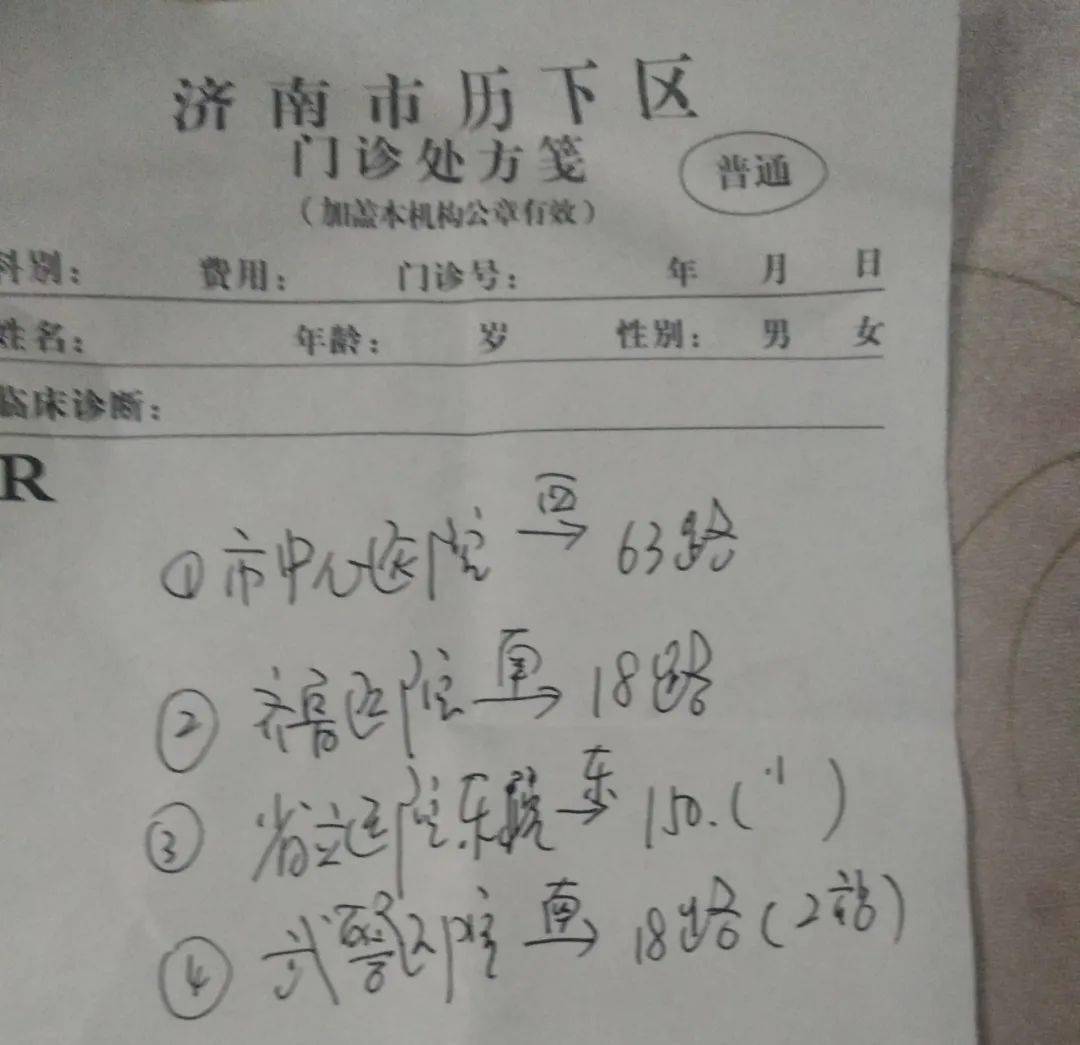 济南市历下区
门诊处方笺
普通
（加盖本机构公章有效）
科别： 费用： 门诊号： 年 月 日
姓名： 年龄： 岁 性别： 男 女
临床诊断：
R
① 市中心医院 西→ 63路
② 齐鲁医院 南→ 18路
③ 省立医院东院 东→ 150.( )
④ 武警医院 南→ 18路(2站)